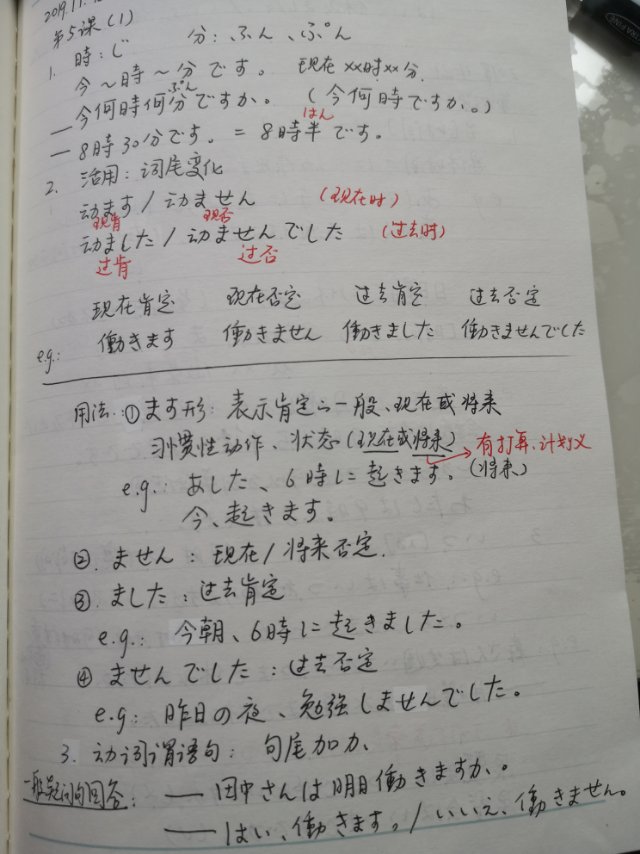 2019.11.
第5课（1）
1. 時：じ　　分：ふん、ぷん
今〜時〜分です。 现在xx时xx分.
ぷん
— 今何時何分ですか。（今何時ですか。）
はん
— 8時30分です。= 8時半です。
2. 活用：词尾变化
动ます / 动ません （现在时）
现肯 现否
动ました / 动ませんでした （过去时）
过肯 过否
现在肯定 现在否定 过去肯定 过去否定
e.g.: 働きます 働きません 働きました 働きませんでした
用法：①ます形：表示肯定的一般、现在或将来
习惯性动作、状态（现在或将来） → 有打算、计划义
e.g.: あした、6時に起きます。（将来）
今、起きます。
②. ません：现在/将来否定.
③. ました：过去肯定
e.g.: 今朝、6時に起きました。
④ ませんでした：过去否定
e.g: 昨日の夜、勉強しませんでした。
3. 动词谓语句：句尾加か、
一般疑问句回答: — 田中さんは明日働きますか。
— はい、働きます。/ いいえ、働きません。